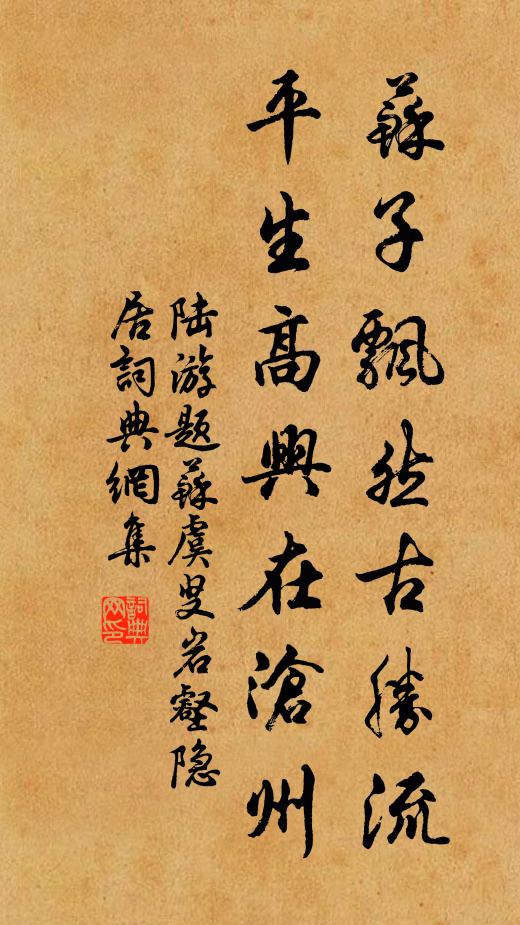 蘇子飄然古勝流
平生高興在滄州
陆游題蘇虞叟岩壑隐
居詞典網集
詞典
网印